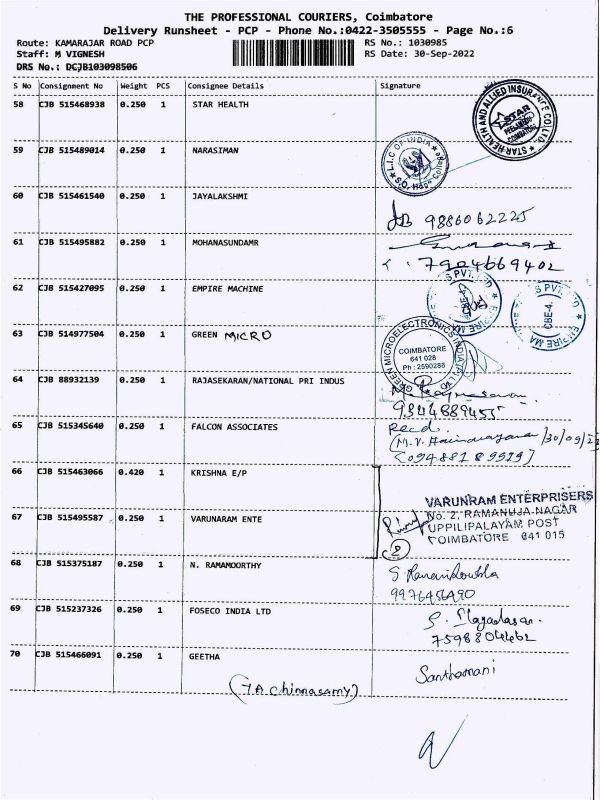 THE PROFESSIONAL COURIERS, Coimbatore
Delivery Runsheet - PCP - Phone No.:0422-3505555 - Page No.:6
Route: KAMARAJAR ROAD PCP RS No.: 1030985
Staff: M VIGNESH RS Date: 30-Sep-2022
DRS No.: DCJB103098506
S No Consignment No Weight PCS Consignee Details Signature
58 CJB 515468938 0.250 1 STAR HEALTH
STAR HEALTH AND ALLIED INSURANCE CO. LTD.
STAR
COIMBATORE
59 CJB 515489014 0.250 1 NARASIMAN
L.I.C OF INDIA
60 CJB 515461540 0.250 1 JAYALAKSHMI
9886062225
61 CJB 515495882 0.250 1 MOHANASUNDAMR
7904669402
62 CJB 515427095 0.250 1 EMPIRE MACHINE
S PVT. LTD. EMPIRE MA
CBE-4.
S PVT. LTD. EMPIRE MA
CBE-4.
63 CJB 514977504 0.250 1 GREEN MICRO
GREEN MICROELECTRONICS INDIA (P) LTD
COIMBATORE
641 028
Ph : 2590288
64 CJB 88932139 0.250 1 RAJASEKARAN/NATIONAL PRI INDUS
9344889455
65 CJB 515345640 0.250 1 FALCON ASSOCIATES
Recd.
30/09/22
(09488189929)
66 CJB 515463066 0.420 1 KRISHNA E/P
67 CJB 515495587 0.250 1 VARUNARAM ENTE
VARUNRAM ENTERPRISERS
No. 2, RAMANUJA NAGAR
UPPILIPALAYAM POST
COIMBATORE 641 015
2
68 CJB 515375187 0.250 1 N. RAMAMOORTHY
9976456490
69 CJB 515237326 0.250 1 FOSECO INDIA LTD
7598804462
70 CJB 515466091 0.250 1 GEETHA
Santhamani
(T.A Chinnasamy)